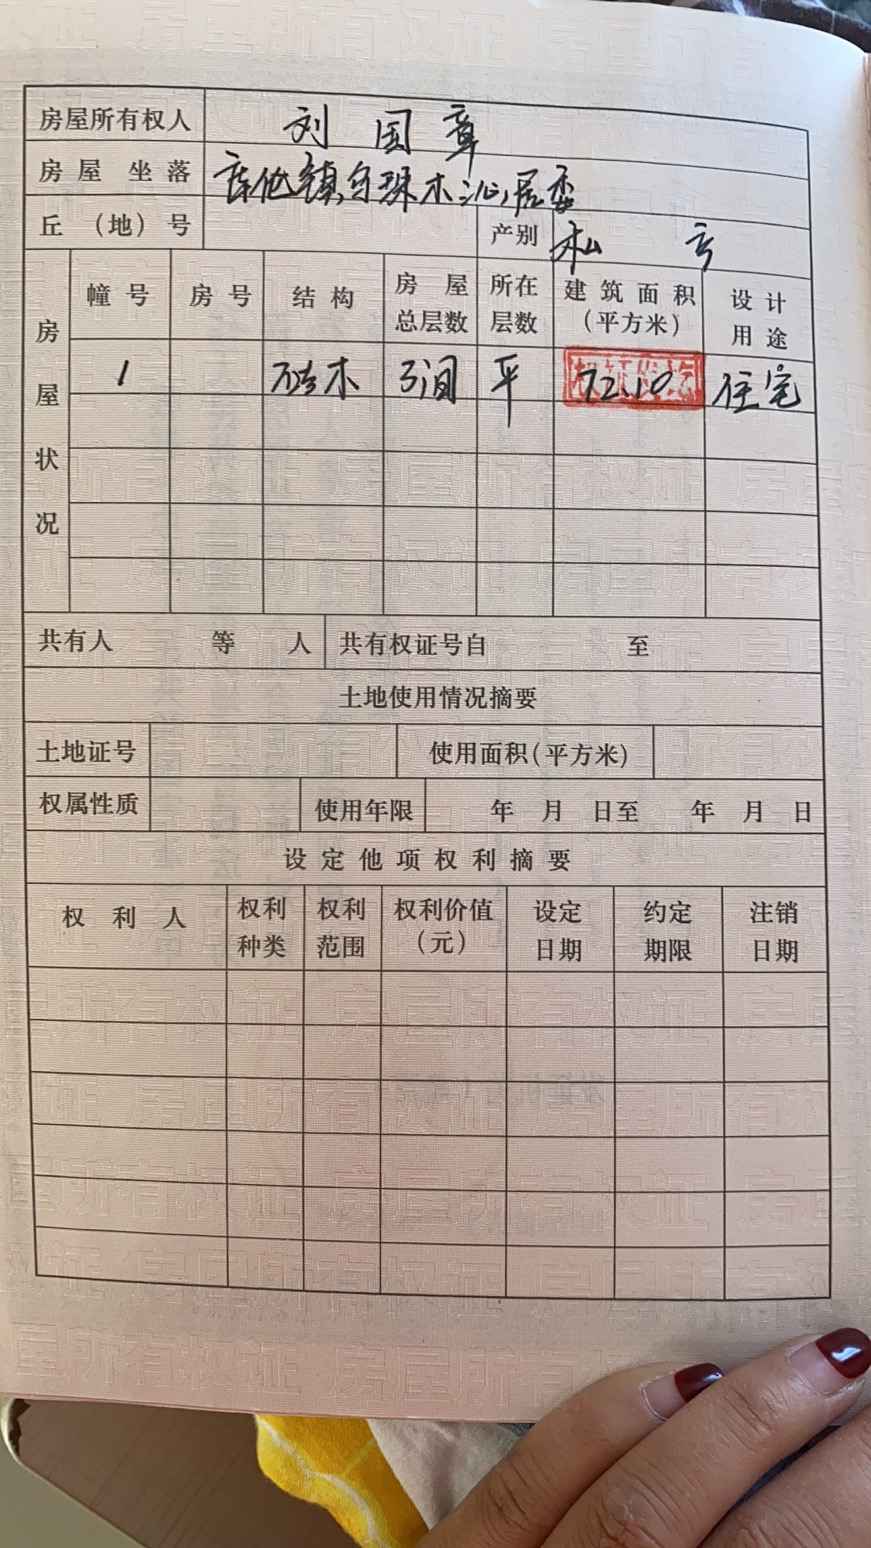 房屋所有权人 刘国章
房屋坐落 库伦镇 木 居委
丘（地）号 产别 私
房屋状况
幢号 房号 结构 房屋总层数 所在层数 建筑面积（平方米） 设计用途
1 砖木 3间 平 72.10 住宅
共有人 等 人 共有权证号自 至
土地使用情况摘要
土地证号 使用面积(平方米)
权属性质 使用年限 年 月 日至 年 月 日
设定他项权利摘要
权利人 权利种类 权利范围 权利价值（元） 设定日期 约定期限 注销日期